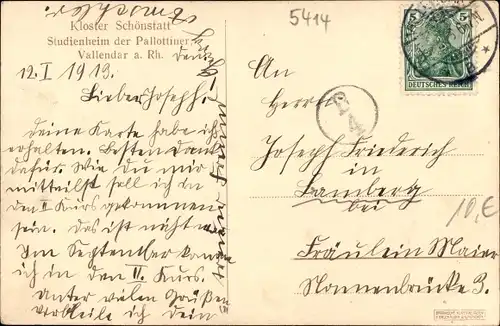 Kloster Schönstatt
Studienheim der Pallottiner
Vallendar a. Rh.
den
12. I 1913.
Lieber Joseph!
Deine Karte habe ich
erhalten. Besten Dank
dafür. Wie Du mir
mitteilst soll ich in
den II Kurs gekommen
sein. Das ist nicht
Im September komme
ich in den II. Kurs.
Unter vielen Grüßen
verbleibe ich Dein
5414
5
5
DEUTSCHES REICH
An
Herrn
Joseph Friederich
in
Bamberg
bei
Fräulein Maier
Nonnenbrücke 3.
10,€